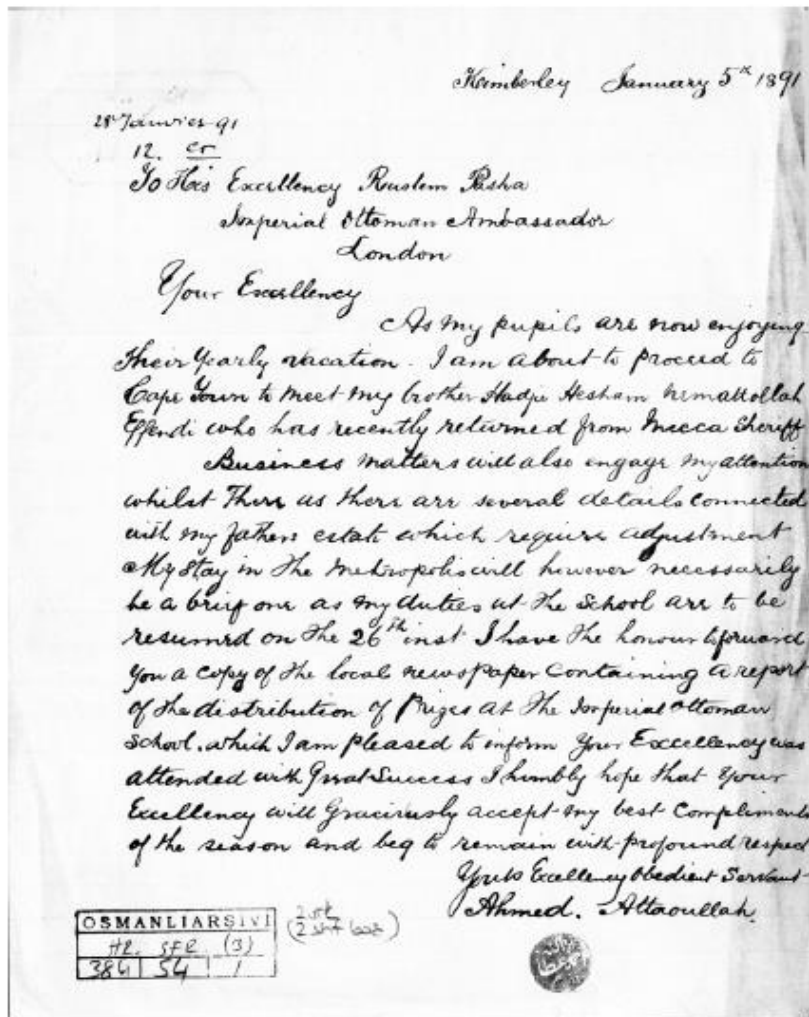 Kimberley January 5th 1891
28 Janvier 91
12. cr
To His Excellency Rustem Pasha
Imperial Ottoman Ambassador
London
Your Excellency
As my pupils are now enjoying
their yearly vacation. I am about to proceed to
Cape Town to meet my brother Hadjie Hesham Nemattollah
Effendi who has recently returned from Mecca Sheriff
Business matters will also engage my attention
whilst there as there are several details connected
with my fathers estate which require adjustment
My stay in the Metropolis will however necessarily
be a brief one as my duties at the School are to be
resumed on the 26th inst I have the honour to forward
you a copy of the local newspaper containing a report
of the distribution of Prizes at the Imperial Ottoman
School. which I am pleased to inform Your Excellency was
attended with Great Success I humbly hope that your
Excellency will Graciously accept my best Compliments
of the season and beg to remain with profound respect
Your Excellency Obedient Servant
Ahmed. Attaoullah.
OSMANLI ARŞİVİ
HR. SFR. (3)
384 54 1